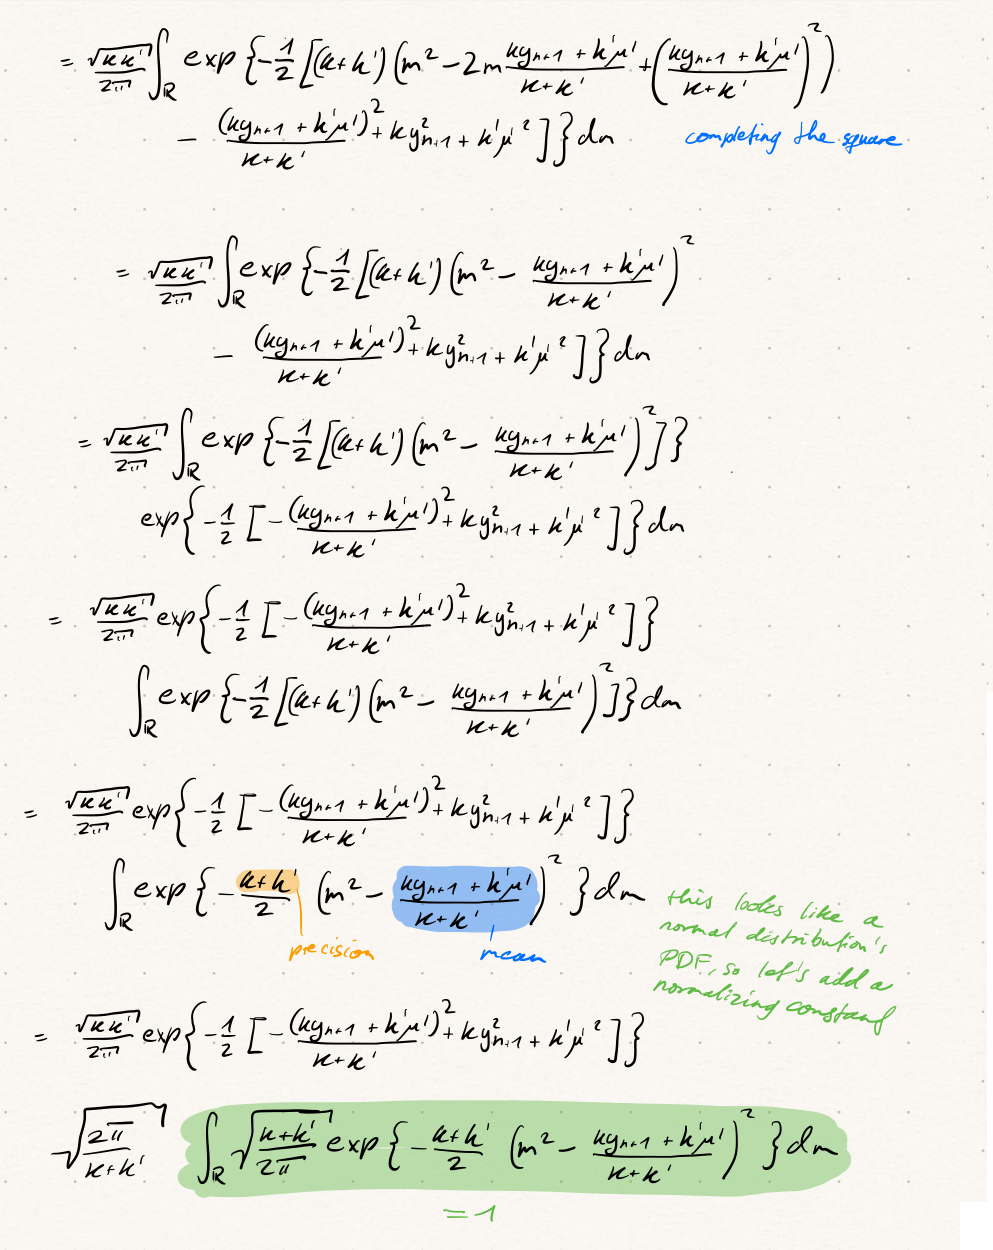 = √(κκ')/2π ∫_ℝ exp {-1/2 [(κ+κ') (m² - 2m (κy_{n+1} + κ'μ')/(κ+κ') + ((κy_{n+1} + κ'μ')/(κ+κ'))²)
- (κy_{n+1} + κ'μ')²/(κ+κ') + κy²_{n+1} + κ'μ'²]} dm completing the square
= √(κκ')/2π ∫_ℝ exp {-1/2 [(κ+κ') (m² - (κy_{n+1} + κ'μ')/(κ+κ'))²
- (κy_{n+1} + κ'μ')²/(κ+κ') + κy²_{n+1} + κ'μ'²]} dm
= √(κκ')/2π ∫_ℝ exp {-1/2 [(κ+κ') (m² - (κy_{n+1} + κ'μ')/(κ+κ'))²]}
exp{-1/2 [-(κy_{n+1} + κ'μ')²/(κ+κ') + κy²_{n+1} + κ'μ'²]} dm
= √(κκ')/2π exp{-1/2 [-(κy_{n+1} + κ'μ')²/(κ+κ') + κy²_{n+1} + κ'μ'²]}
∫_ℝ exp {-1/2 [(κ+κ') (m² - (κy_{n+1} + κ'μ')/(κ+κ'))²]} dm
= √(κκ')/2π exp{-1/2 [-(κy_{n+1} + κ'μ')²/(κ+κ') + κy²_{n+1} + κ'μ'²]}
∫_ℝ exp {-(κ+κ')/2 (m² - (κy_{n+1} + κ'μ')/(κ+κ'))²} dm
precision mean
this looks like a
normal distribution's
PDF, so let's add a
normalizing constant
= √(κκ')/2π exp{-1/2 [-(κy_{n+1} + κ'μ')²/(κ+κ') + κy²_{n+1} + κ'μ'²]}
√(2π/(κ+κ')) ∫_ℝ √((κ+κ')/2π) exp {-(κ+κ')/2 (m² - (κy_{n+1} + κ'μ')/(κ+κ'))²} dm
= 1